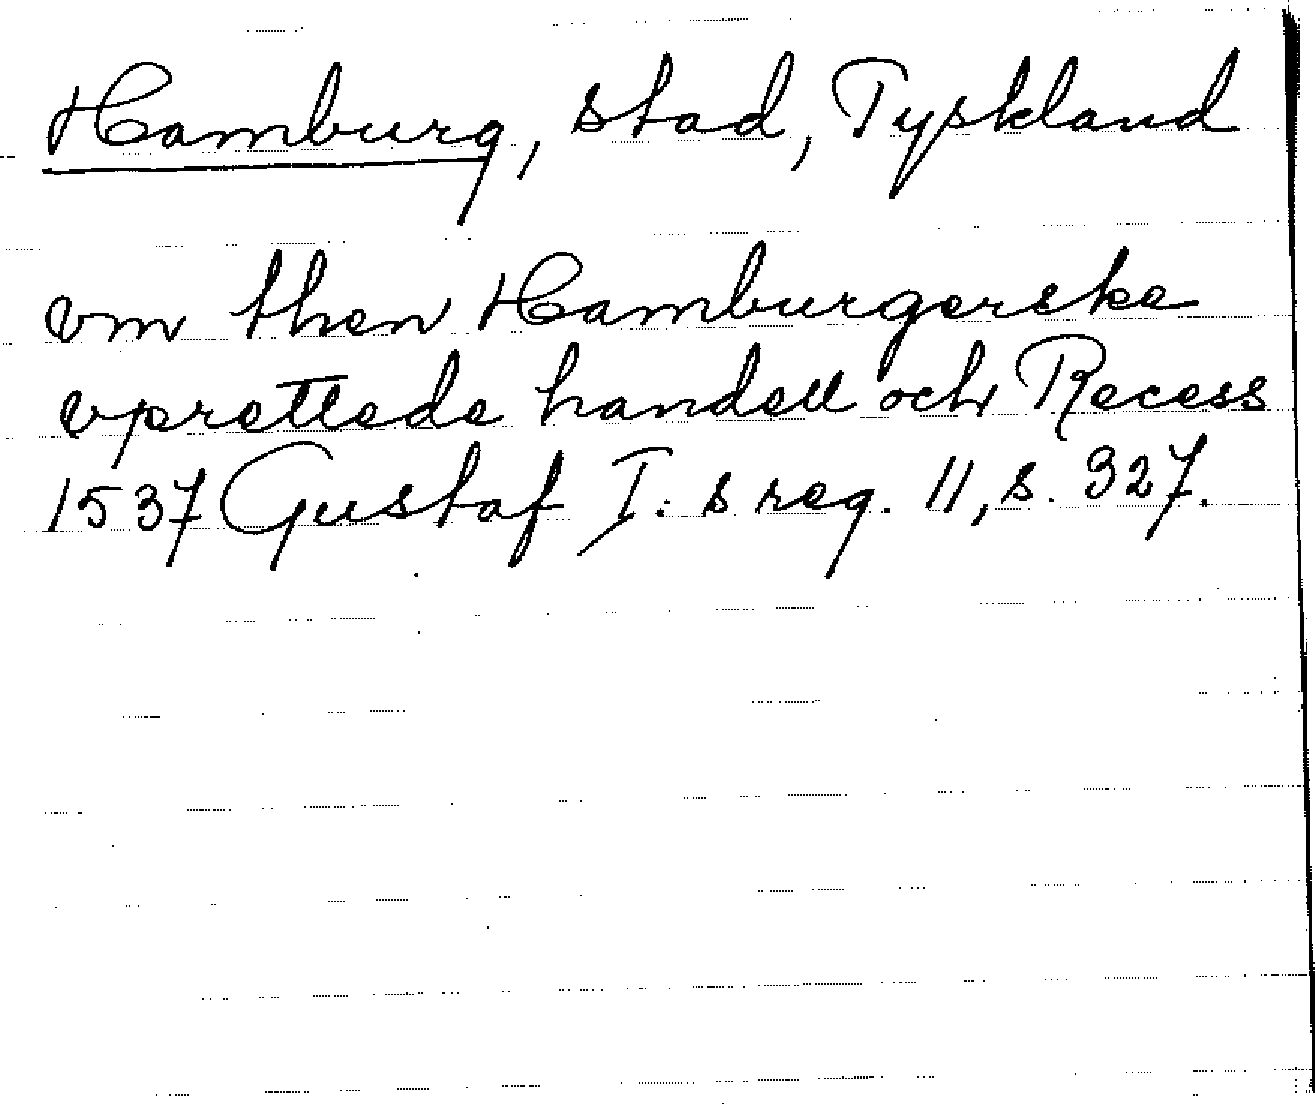 Hamburg, stad, Tyskland
vm then Hamburgerske
vprettede handell och Recess
1537 Gustaf I: s reg. 11, s. 327.